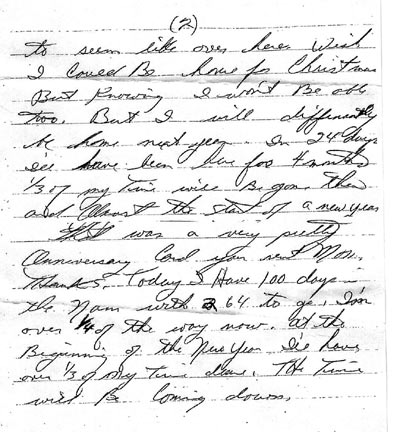 (2)
to seem like over here. Wish
I Could Be home for Christmas
But Knowing I won't Be able
too. But I will differently
be home next year. In 24 days
I'll have been here for 4 months
1/3 of my Time will Be gone then
and Almost the start of a new year
That was a very pretty
Anniversary Card you sent Mom.
Thanks. Today I Have 100 days in
the Nam with 264 to go. I'm
over 1/4 of the way now. at the
Beginning of the New Year I'll have
over 1/3 of my Time done. The Time
will Be Coming down.